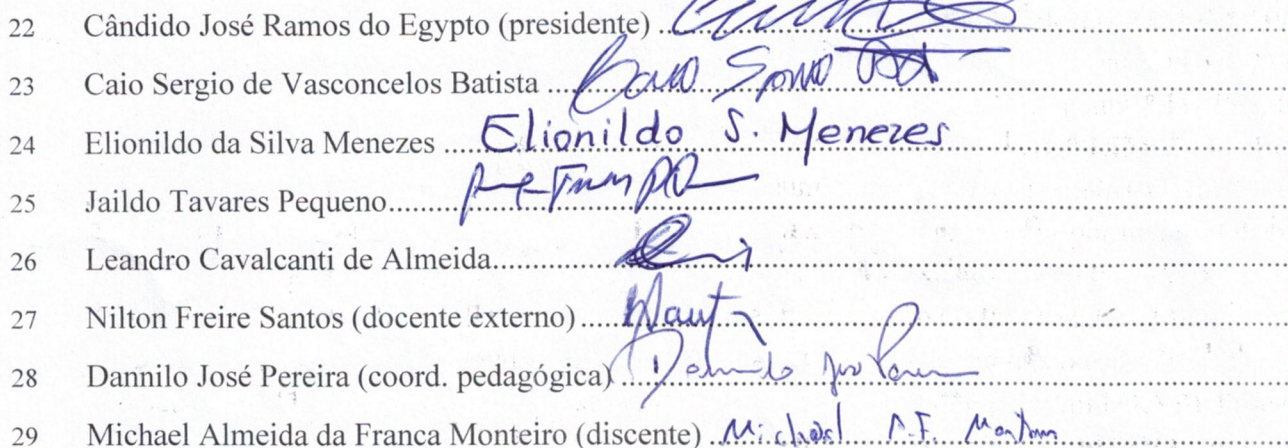 22 Cândido José Ramos do Egypto (presidente)
23 Caio Sergio de Vasconcelos Batista
24 Elionildo da Silva Menezes Elionildo S. Menezes
25 Jaildo Tavares Pequeno
26 Leandro Cavalcanti de Almeida
27 Nilton Freire Santos (docente externo)
28 Dannilo José Pereira (coord. pedagógica)
29 Michael Almeida da Franca Monteiro (discente) Michael